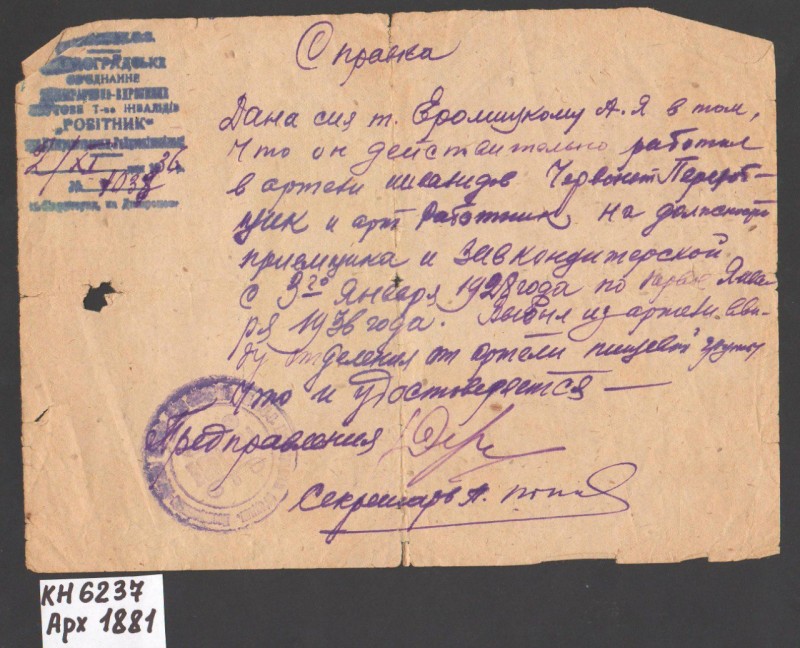 Справка
ОБ'ЄДНАННЯ
Т-во ІНВАЛІДІВ
"РОБІТНИК"
21/XI 1936 р.
№ 1038
Дана сия т. Еромицкому А. Я в том,
что он действительно работал
в артели инвалидов Червонет Перероб-
щик и арт Работник на должности
приемщика и завкондитерской
с 3го Января 1928 года по Янва-
ря 1936 года. Выбыл из артели вви-
ду отделения от артели пищевой группы
что и удостоверяется —
Предправления
Секретарь А.
КН 6237
Арх 1881